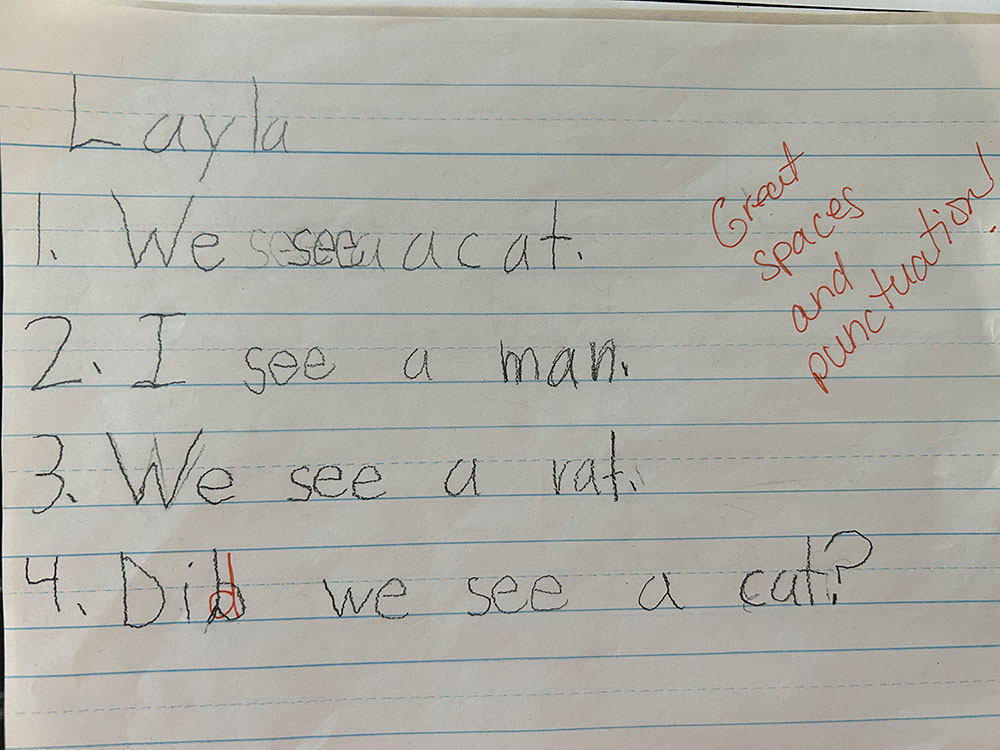 Layla
1. We see a cat.
2. I see a man.
3. We see a rat.
4. Did we see a cat?
Great
spaces
and
punctuation!